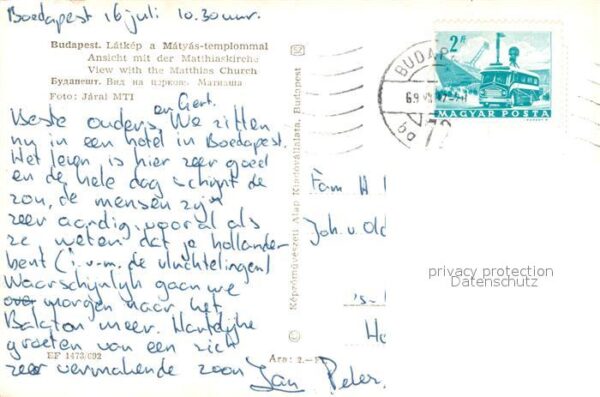 Boedapest 16 juli 10.30 uur.
Budapest. Látkép a Mátyás-templommal
Ansicht mit der Matthiaskirche
View with the Matthias Church
Будапешт. Вид на церковь Матиаша
Foto: Járai MTI
en Gert.
Beste ouders, We zitten
nu in een hotel in Boedapest.
Het leven is hier zeer goed
en de hele dag schijnt de
zon, de mensen zijn
zeer aardig, vooral als
ze weten dat je hollander
bent (i.v.m. de vluchtelingen)
Waarschijnlijk gaan we
over morgen naar het
Balaton meer. Hartelijke
groeten van een zich
zeer vermakende zoon
Jan Peter.
EF 1473/692
Ara: 2.–
Képzőművészeti Alap Kiadóvállalata, Budapest
©
BUDAPE
69
2 Ft
MAGYAR POSTA
Fam H
Joh. v. Old
's-
He
privacy protection
Datenschutz